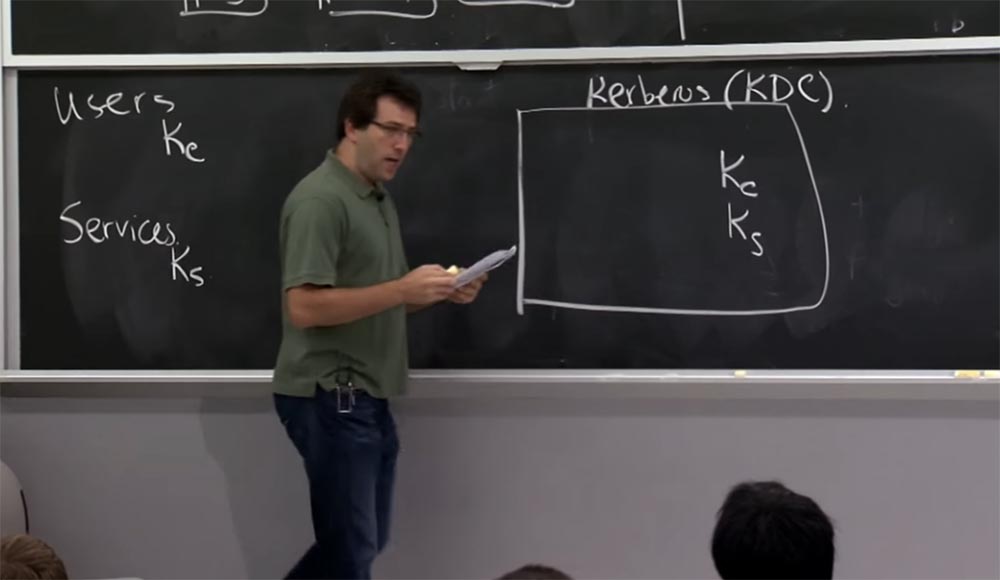 Users
Kc
Services
Ks
Kerberos (KDC).
Kc
Ks